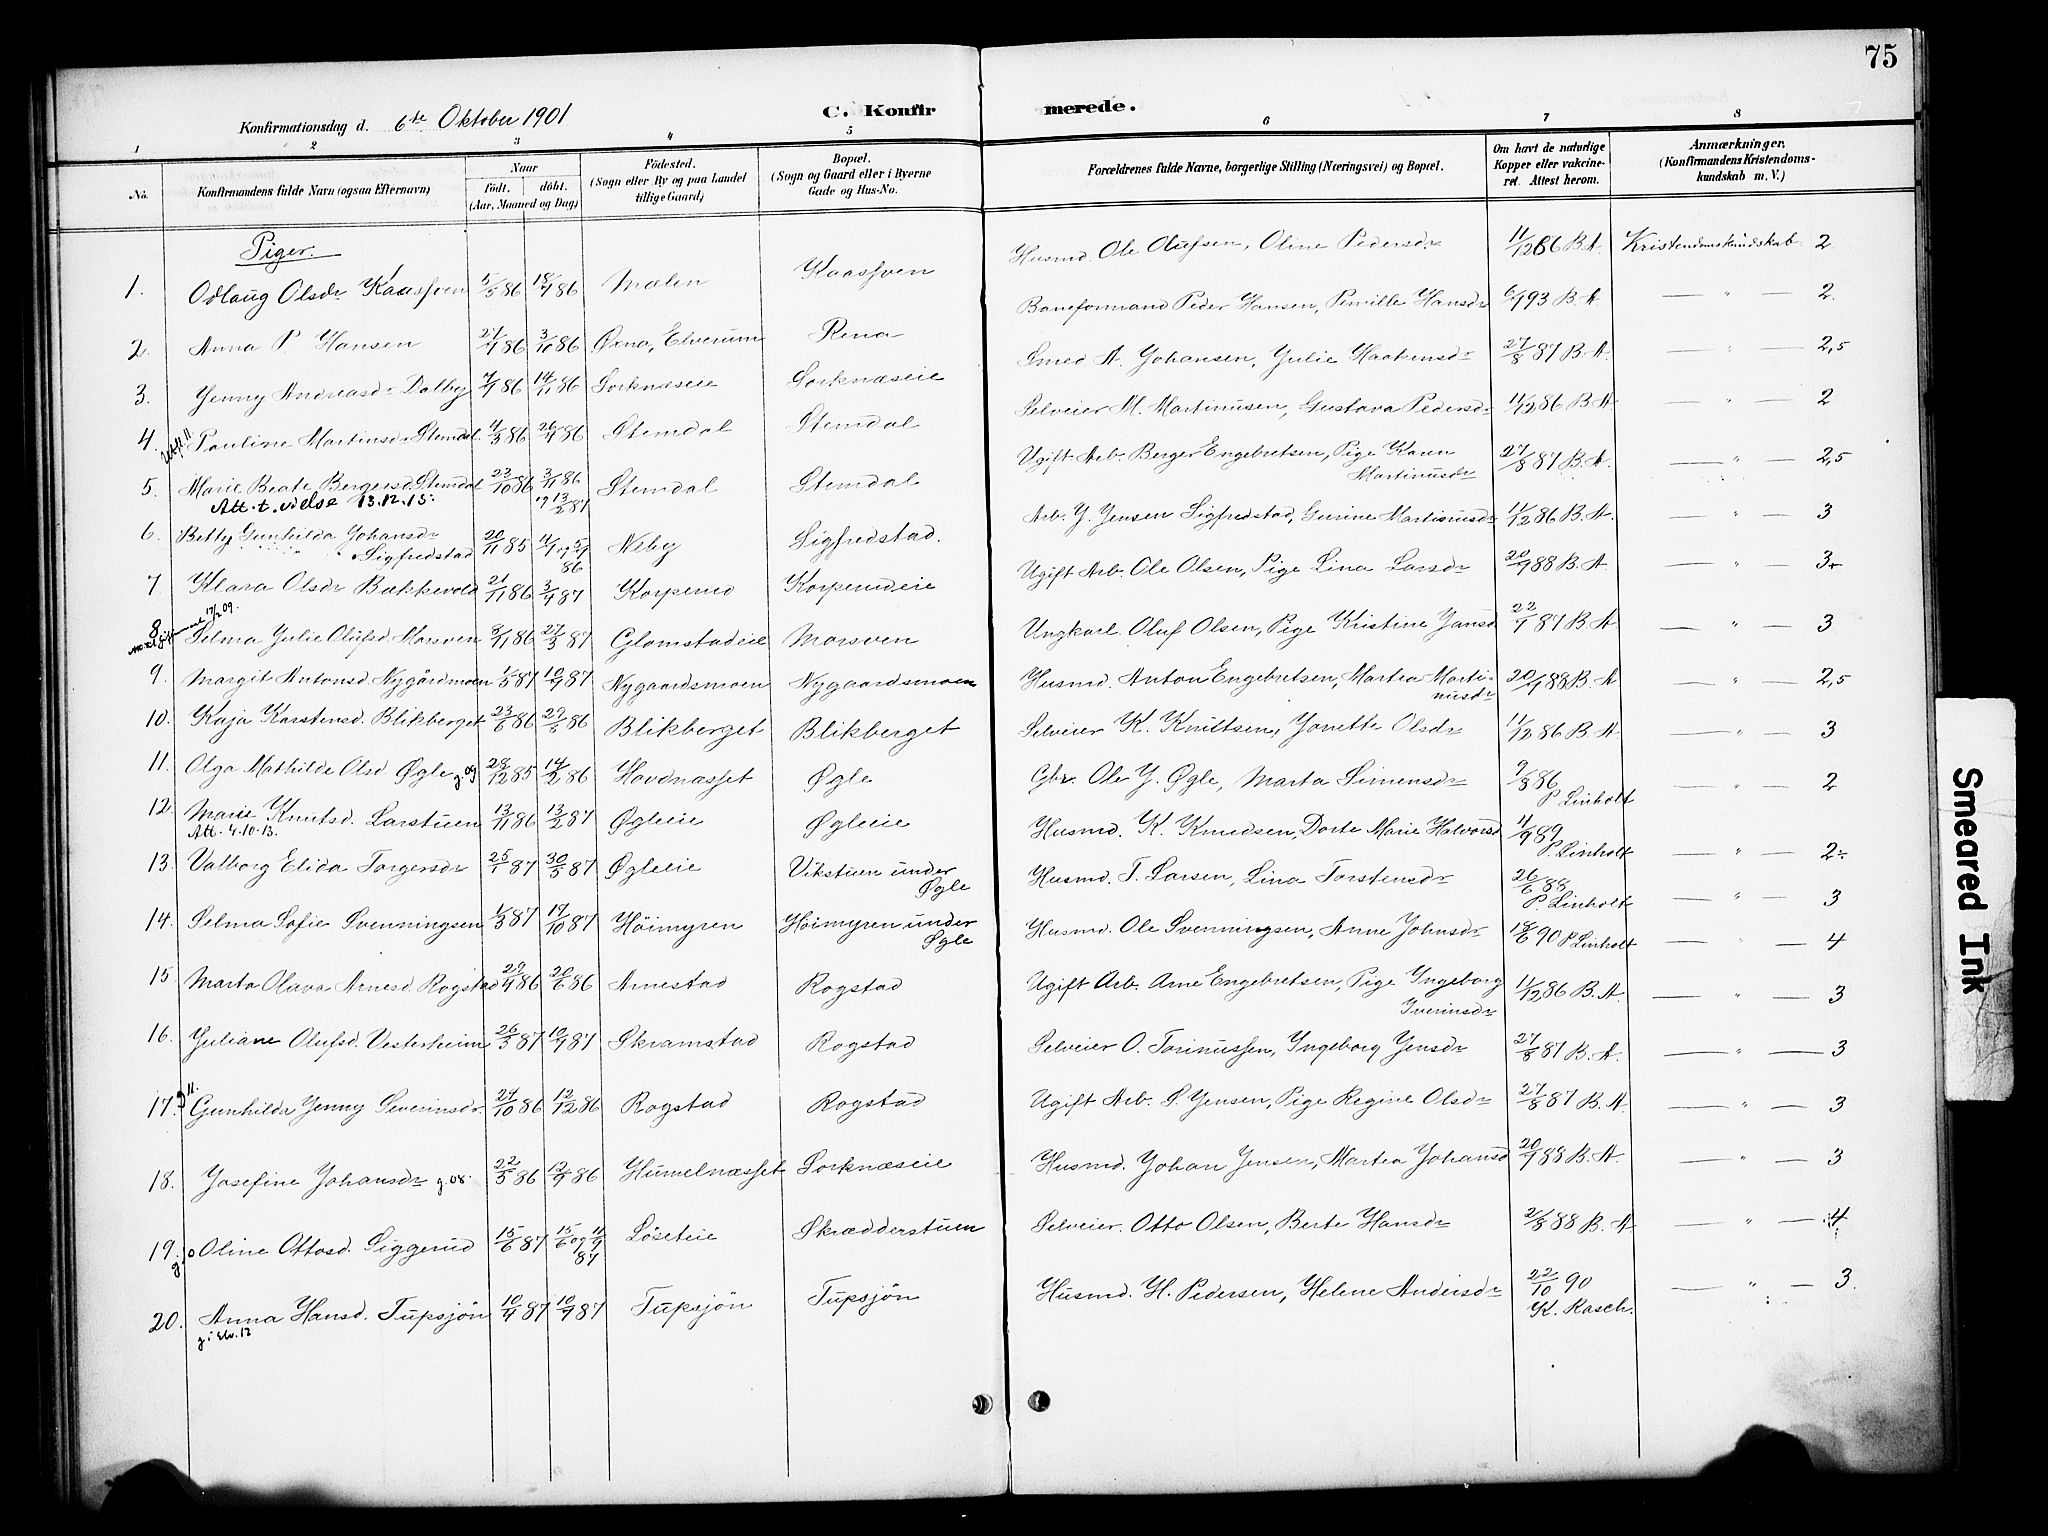 75
Konfirmationsdag d. 6te Oktober 1901 C. Konfirmerede.
1 2 3 4 5 6 7 8
No. Konfirmandens fulde Navn (ogsaa Efternavn) Naar født. døbt. (Aar, Maaned og Dag) Födested. (Sogn eller By og paa Landet tillige Gaard) Bopæl. (Sogn og Gaard eller i Byerne Gade og Hus-No. Forældrenes fulde Navne, borgerlige Stilling (Næringsvei) og Bopæl. Om havt de naturlige Kopper eller vakcineret. Attest herom. Anmærkninger. (Konfirmandens Kristendomskundskab m. V.)
Piger.
1. Odlaug Olsdr Kaasven 5/5 86 18/7 86 Mælen Kaasven Husmd. Ole Olufsen, Oline Pedersdr 11/12 86 B. A. Kristendomskundskab 2
2. Anna P. Hansen 27/7 86 3/10 86 Øxna, Elverum Rena Baneformand Peder Hansen, Pernille Hansdr 6/7 93 B. A. — " — 2.
3. Jenny Andreasdr Dalby 7/9 86 14/11 86 Sorknæseie Sorknæseie Smed A. Johansen, Julie Haakensdr 27/8 87 B. A. — " — 2,5
4. Pauline Martinsdr Stemdal 4/3 86 26/4 86 Stemdal Stemdal Selveier M. Martinusen, Gustava Pedersdr 11/12 86 B. A. — " — 2
5. Marie Beate Bergersd. Stemdal 23/10 86 3/11 86 og 13/2 87 Stemdal Stemdal Ugift Arb. Berger Engebretsen, Pige Karen Martinusdr 27/8 87 B. A. — " — 2,5
Att. t. vielse 13.12.15.
6. Betty Gunhilda Johansdr Sigfredstad 20/11 85 Neby Sigfredstad. Arb. J. Jensen Sigfredstad, Gurine Martinusdr 11/12 86 B. A. — " — 3
7 Klara Olsdr Bakkevold 21/11 86 3/4 87 Korperud Korperudeie Ugift Arb. Ole Olsen, Pige Lina Larsdr 20/9 88 B. A. — " — 3-
8 Selma Julie Olufsd. Morsven 8/11 86 27/3 87 Glomstadeie Morsven Ungkarl Oluf Olsen, Pige Kristine Jansd 22/9 87 B. A. — " — 3
17/2 09.
9 Margit Antonsd. Nygårdmoen 1/5 87 10/9 87 Nygaardsmoen Nygaardsmoen Husmd. Anton Engebretsen, Martea Martinusdr 20/9 88 B. A. — " — 2,5
10. Kaja Karstensd. Blikberget 23/6 86 29/8 86 Blikberget Blikberget Selveier K. Knutsen, Jonette Olsdr 11/12 86 B. A. — " — 3
11. Olga Mathilde Olsd. Øgle g. 09 28/12 85 14/2 86 Hovdnæsset Øgle Gbr. Ole J. Øgle, Marta Simensdr 9/8 86 P. Linholt — " — 2
12. Marie Knutsd. Larstuen 13/11 86 13/2 87 Øgleie Øgleie Husmd. K. Knudsen, Dorte Marie Halvorsd 4/9 89 P. Linholt — " — 2-
Att. 4.10.13.
13. Valborg Elida Torgersdr 25/1 87 30/5 87 Øgleie Vikstuen under Øgle Husmd. T. Larsen, Lina Torstensdr 26/6 88 P. Linholt — " — 3
14. Selma Sofie Svenningsen 1/3 87 17/10 87 Höimyren Höimyren under Øgle Husmd. Ole Svenningsen, Anne Johnsdr 18/6 90 P. Linholt — " — 4
15 Marta Olava Arnesd. Rogstad 29/4 86 20/6 86 Arnestad Rogstad Ugift Arb. Arne Engebretsen, Pige Ingeborg Iverinsdr 11/12 86 B. A. — " — 3
16. Juliane Olufsd. Vesterheim 26/3 87 10/9 87 Skramstad Rogstad Selveier O. Torinussen, Ingeborg Jensdr 27/8 87 B. A. — " — 3
17. g 11. Gunhilda Jenny Severinsdr. 24/10 86 12/12 86 Rogstad Rogstad Ugift Arb. S. Jensen, Pige Regine Olsdr 27/8 87 B. A. — " — 3
18. Josefine Johansdr g. 08. 22/5 86 12/9 86 Humelnæsset Sorknæseie Husmd. Johan Jensen, Martea Johansd 20/9 88 B. A. — " — 3
19. Oline Ottosd. Siggerud 15/6 87 15/6 og 4/9 87 Löseteie Skrædderstuen Selveier Otto Olsen, Berte Hansdr 2/8 88 B. A. — " — 4
20. Anna Hansd. Tupsjön 10/4 87 10/9 87 Tupsjön Tupsjön Husmd. H. Pedersen, Helene Andersdr 22/10 90 K. Rasch. — " — 3.
g. i Elv. 12
Smeared Ink